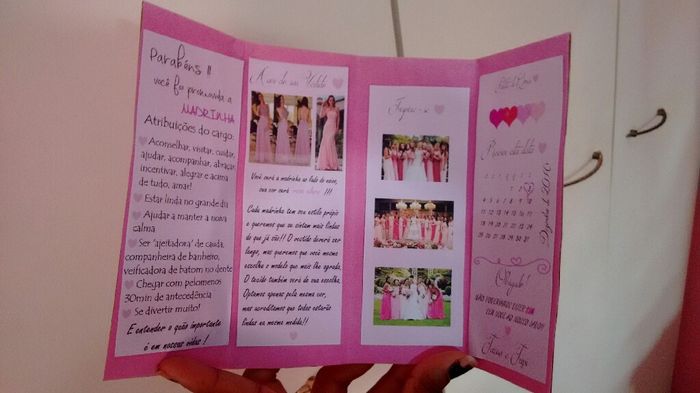 Parabéns !!
você foi promovida a
MADRINHA
Atribuições do cargo:
Aconselhar, visitar, cuidar,
ajudar, acompanhar, abraçar,
incentivar, alegrar e acima
de tudo, amar!
Estar linda no grande dia
Ajudar a manter a noiva
calma
Ser 'ajeitadora' de cauda,
companheira de banheiro,
verificadora de batom no dente
Chegar com pelomenos
30min de antecedência
Se divertir muito!
E entender o quão importante
é em nossas vidas !
A cor do seu Vestido
Você será a madrinha ao lado da noiva,
sua cor será !!!
Cada madrinha tem seu estilo própio
e queremos que se sintam mais lindas
do que já são!! O vestido deverá ser
longo, mas queremos que você mesma
escolha o modelo que mais lhe agrada.
O tecido também será de sua escolha.
Optamos apenas pela mesma cor,
mas acreditamos que todas estarão
lindas na mesma medida!!
Inspire-se
Dezembro de 2016
Obrigada!
NÃO PODERIAMOS DIZER SIM
SEM VOCÊ AO NOSSO LADO!